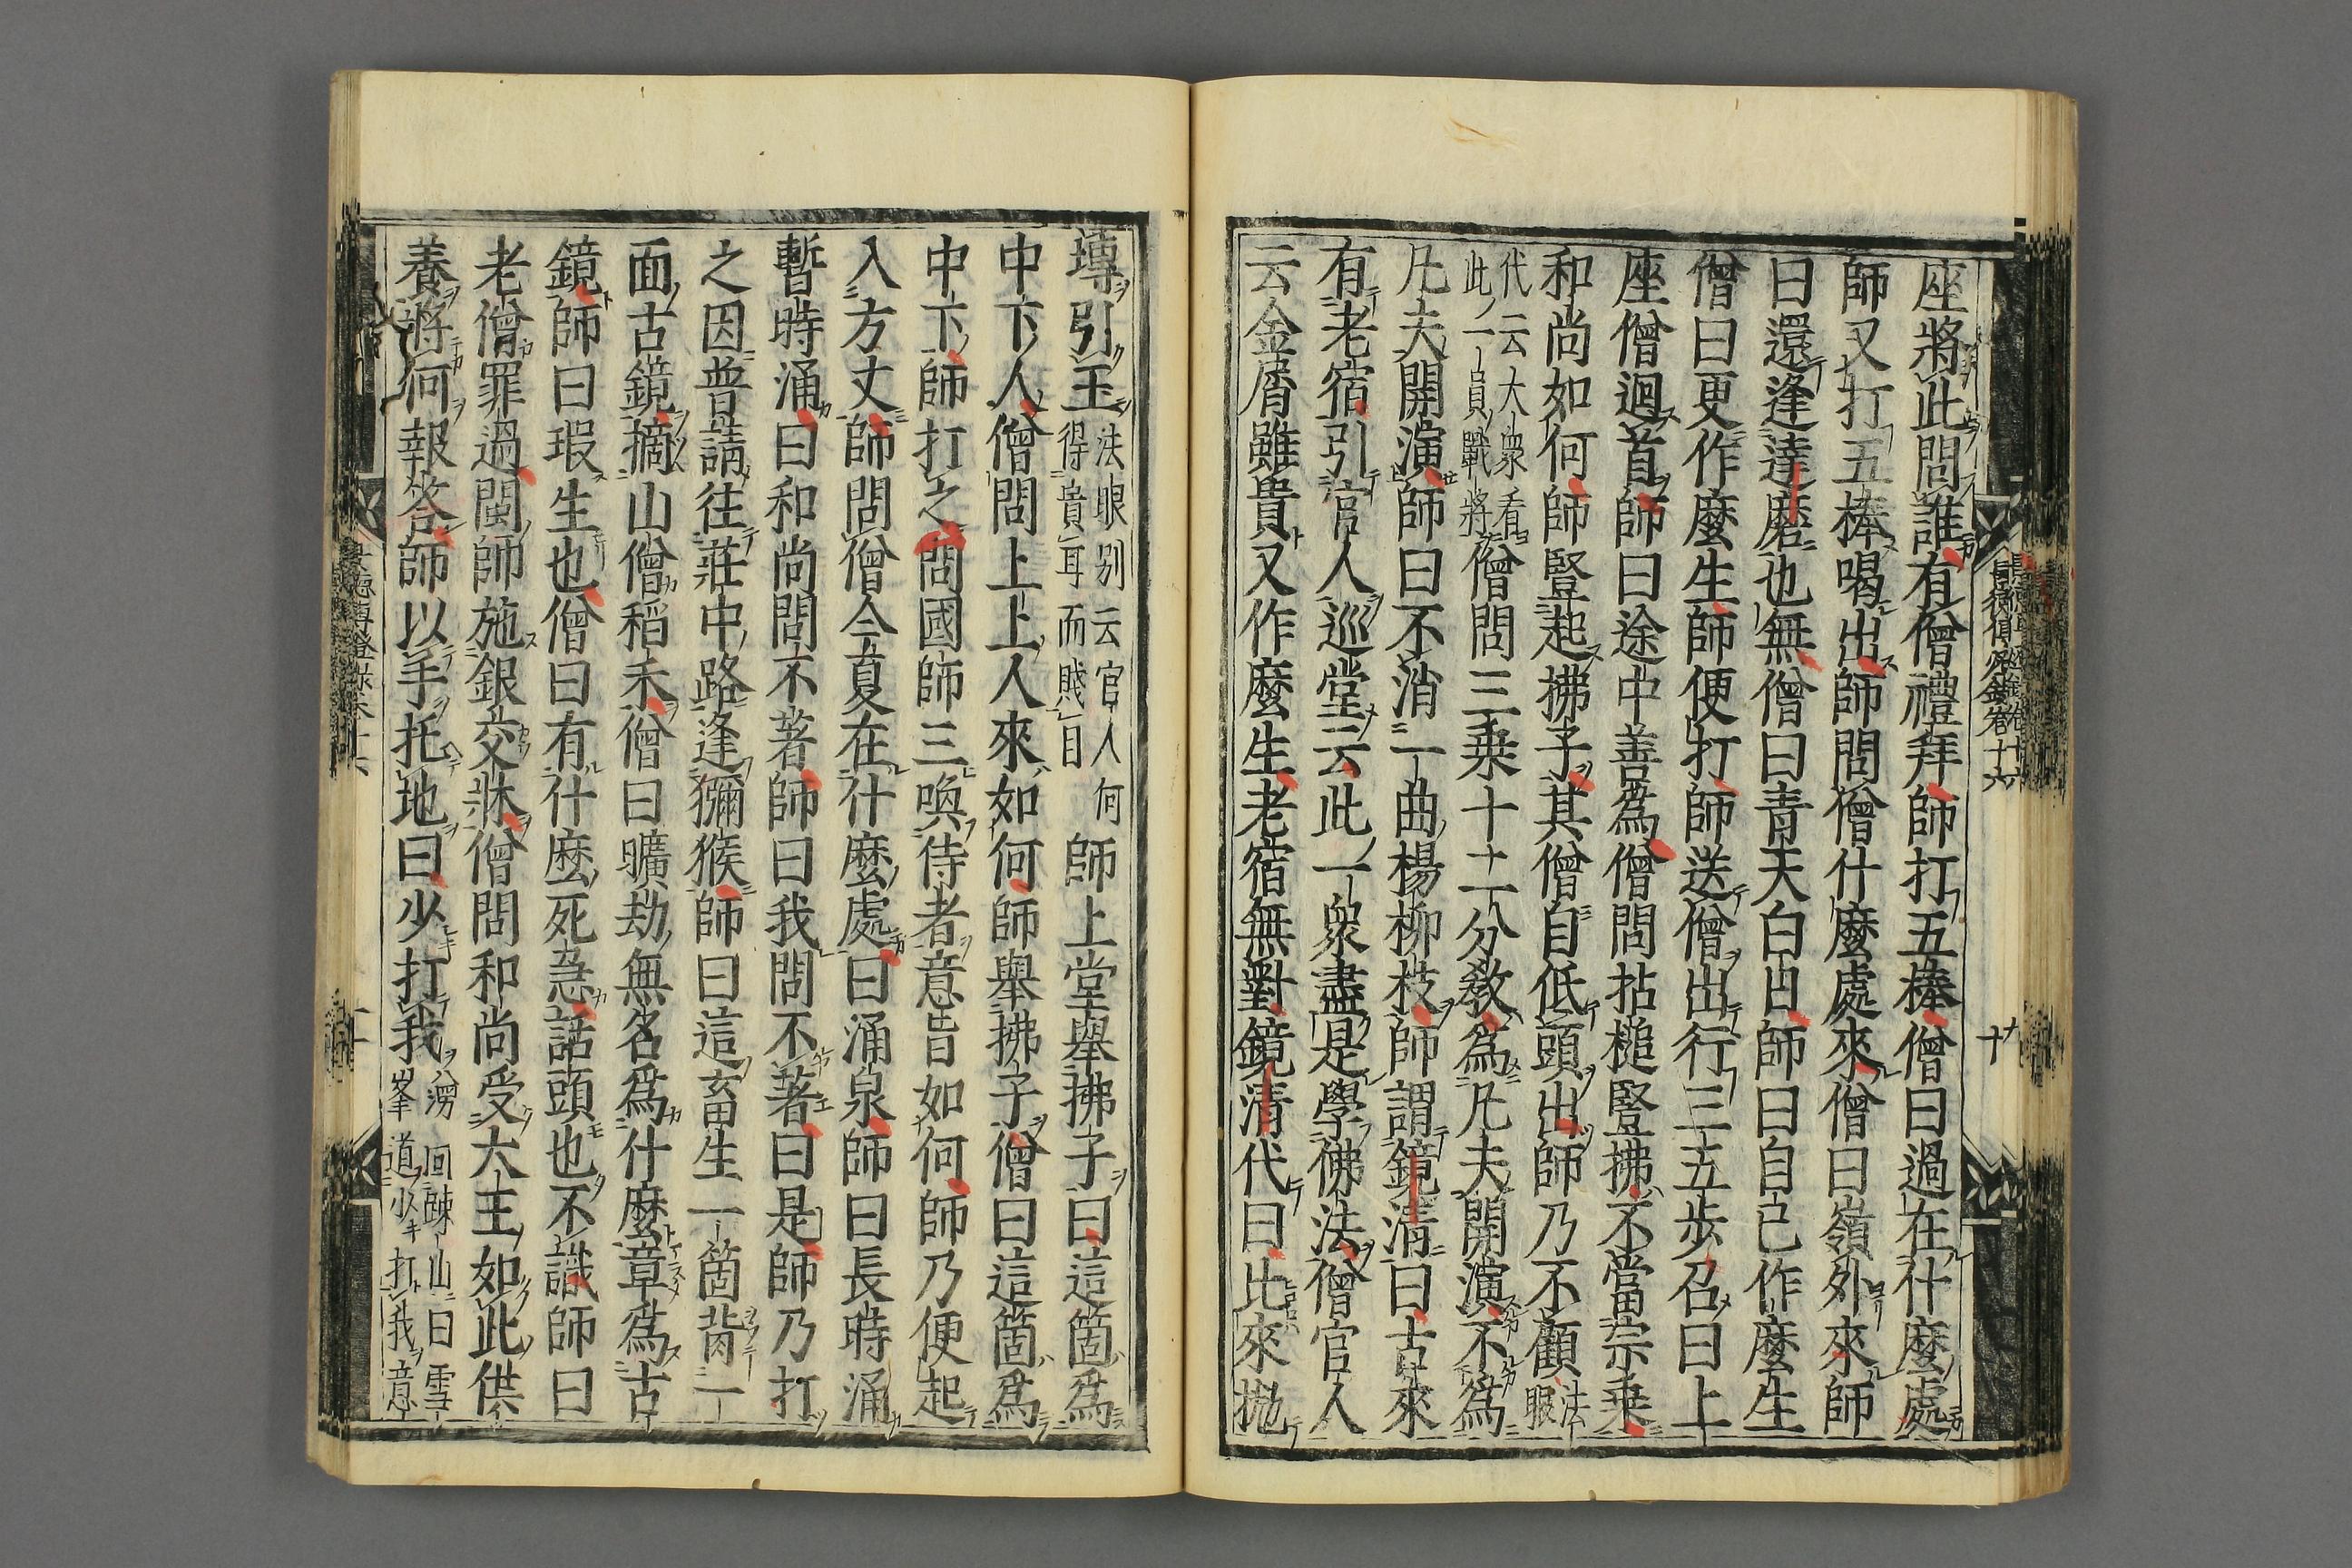 座將此問誰有僧禮拜師打五棒僧曰過在什麼處
師又打五棒喝出師問僧什麼處來僧曰嶺外來師
曰還逢達磨也無僧曰青天白日師曰自己作麼生
僧曰更作麼生師便打師送僧出行三五步召曰上
座僧迴首師曰途中善爲僧問拈槌豎拂不當宗乗
和尚如何師豎起拂子其僧自低頭出師乃不顧法眼
代云大衆看此一員戰將僧問三乗十二分教爲凡夫開演不爲
凡夫開演師曰不消一曲楊柳枝師謂鏡清曰古來
有老宿引官人巡堂云此一衆盡是學佛法僧官人
云金屑雖貴又作麼生老宿無對鏡清代曰比來抛
塼引玉法眼别云官人何得貴耳而賤目師上堂舉拂子曰這箇爲
中下人僧問上上人來如何師舉拂子僧曰這箇爲
中下師打之問國師三喚侍者意旨如何師乃便起
入方丈師問僧今夏在什麼處曰涌泉師曰長時涌
暫時涌曰和尚問不著師曰我問不著曰是師乃打
之因普請往莊中路逢獼猴師曰這畜生一箇背一
面古鏡摘山僧稻禾僧曰曠劫無名爲什麼章爲古
鏡師曰瑕生也僧曰有什麼死急話頭也不識師曰
老僧罪過閩師施銀交牀僧問和尚受大王如此供
養將何報答師以手托地曰少打我僧問踈山曰雪峯道少打我意